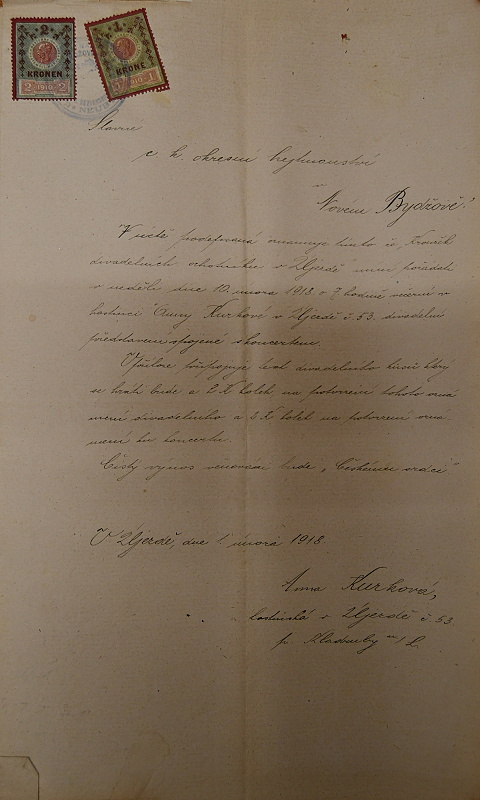 2
KRONEN
2 1910 2
1
KRONE
1910 1
Slavné
c. k. okresní hejtmanství
v
Novém Bydžově!
V úctě podepsaná oznamuje tímto že „Kroužek
divadelních ochotníků v Újezdě" míní pořádati
v neděli dne 10. února 1918 o 7 hodině večerní v
hostinci Anny Kurkové v Újezdě č. 53. divadelní
představení spojené s koncertem.
V příloze připojuje text divadelního kusu který
se hráti bude a 2 K kolek na potvrzení tohoto ozná
mení divadelního a 3 K kolek na potvrzení ozná
mení ku koncertu.
Čistý výnos věnován bude „Českému srdci".
V Újezdě, dne 1. února 1918.
Anna Kurková,
hostinská v Újezdě č 53
p. Kladruby n/L.